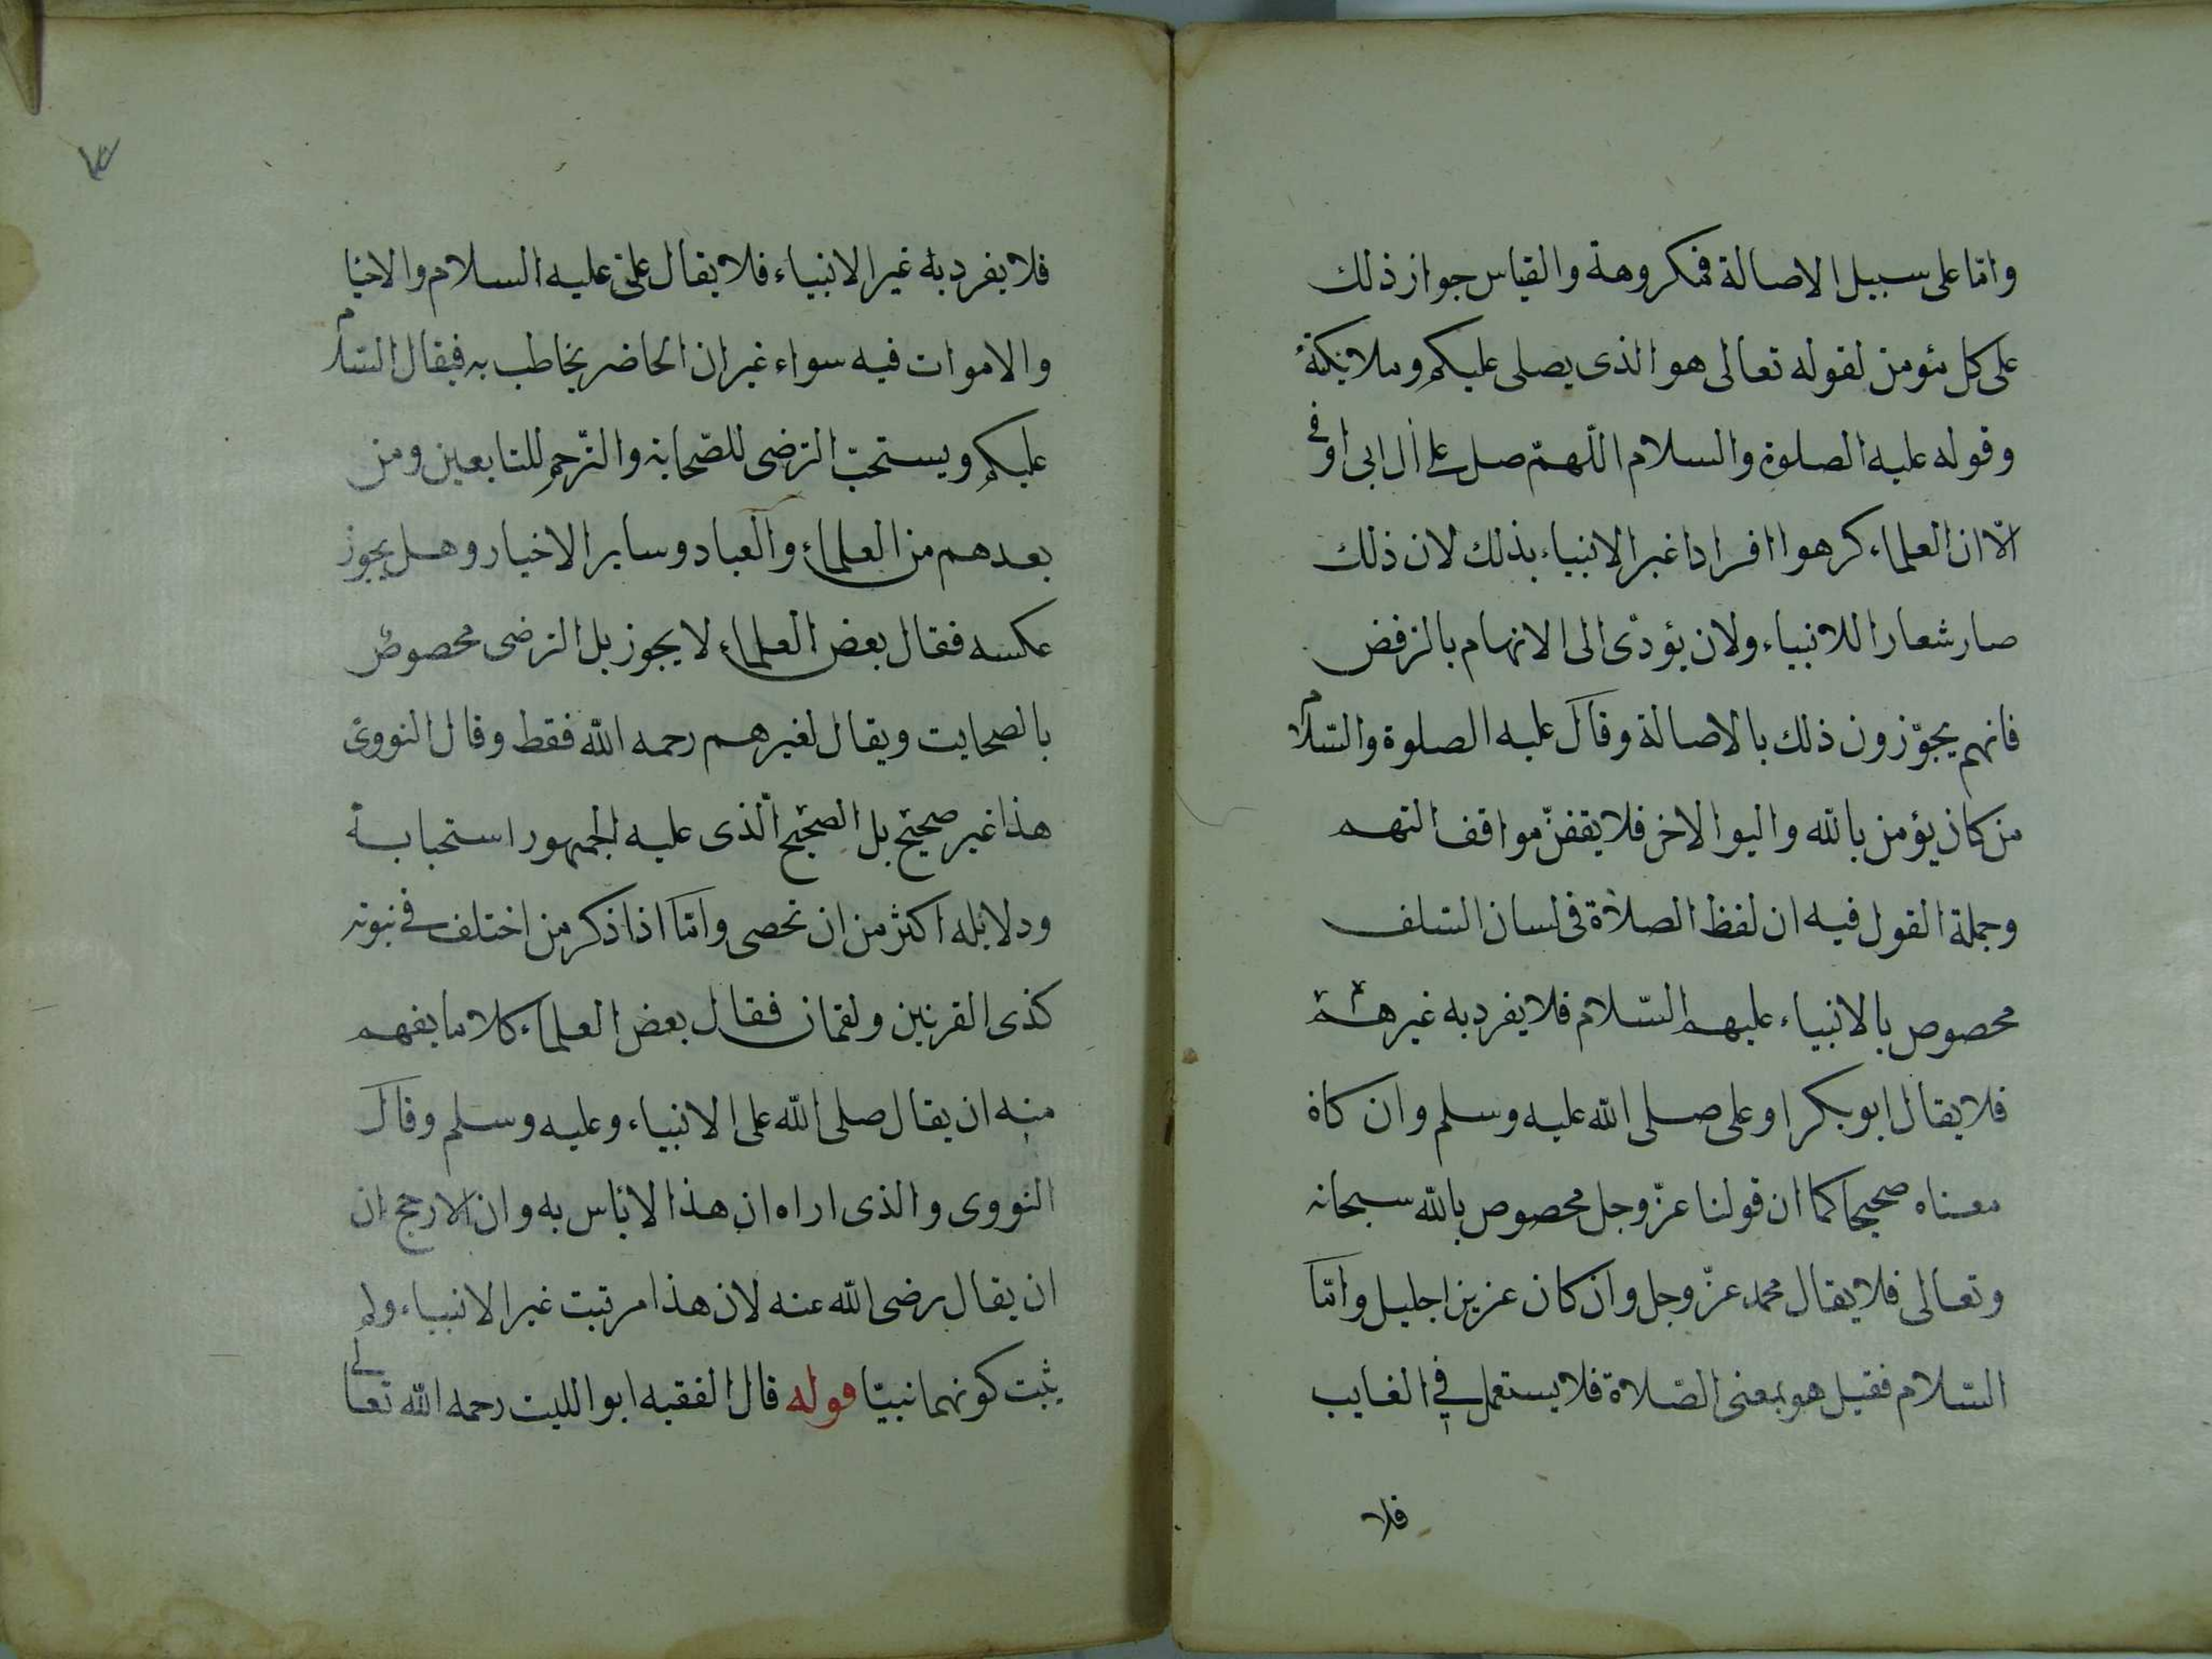 واما على سبيل الاصالة فمكروهة والقياس جواز ذلك
على كل مئومن لقوله تعالى هو الذى يصلى عليكم وملائكتة
وقوله عليه الصلوة والسلام اللهم صل على آل ابى اوفى
الّا ان العلماء كرهوا افرادا غير الانبياء بذلك لان ذلك
صار شعارا للانبياء ولان يؤدى الى الاتهام بالرفض
فانهم يجوّزون ذلك بالاصالة وقال عليه الصلوة والسّلام
من كان يؤمن بالله واليوا الاخر فلا يقفنّ مواقف التهم
وجملة القول فيه ان لفظ الصلاة فى لسان السّلف
مخصوص بالانبياء عليهم السّلام فلا يفرد به غيرهم
فلا يقال ابو بكر او على صلى الله عليه وسلم وان كان
معناه صحيحا كما ان قولنا عزّ وجل مخصوص بالله سبحانه
وتعالى فلا يقال محمد عزّ وجل وان كان عزيزا جليل وامّا
السّلام فقيل هو بمعنى الصّلاة فلا يستعمل فى الغايب
فلا
٣
فلا يفرد به غير الانبياء فلا يقال علىّ عليه السلام والاحيا
والاموات فيه سواء غير ان الحاضر يخاطب به فيقال السّلام
عليكم ويستحبّ الترضى للصّحابة والترّحم للتابعين ومن
بعدهم من العلماء والعباد وساير الاخيار وهل يجوز
عكسه فقال بعض العلماء لا يجوز بل الترضى مخصوص
بالصحابت ويقال لغيرهم رحمه الله فقط وقال النووى
هذا غير صحيح بل الصحيح الّذى عليه الجمهور استحبابة
ودلائله اكثر من ان تحصى وامّا اذا ذكر من اختلف فى نبوته
كذى القرنين ولقمان فقال بعض العلماء كلاما يفهم
منه ان يقال صلى الله على الانبياء وعليه وسلم وقال
النووى والذى اراه ان هذا لا بأس به وان الارجح ان
ان يقال رضى الله عنه لان هذا مرتبت غير الانبياء ولم
يثبت كونهما نبيّا قوله قال الفقيه ابو الليث رحمه الله تعالى